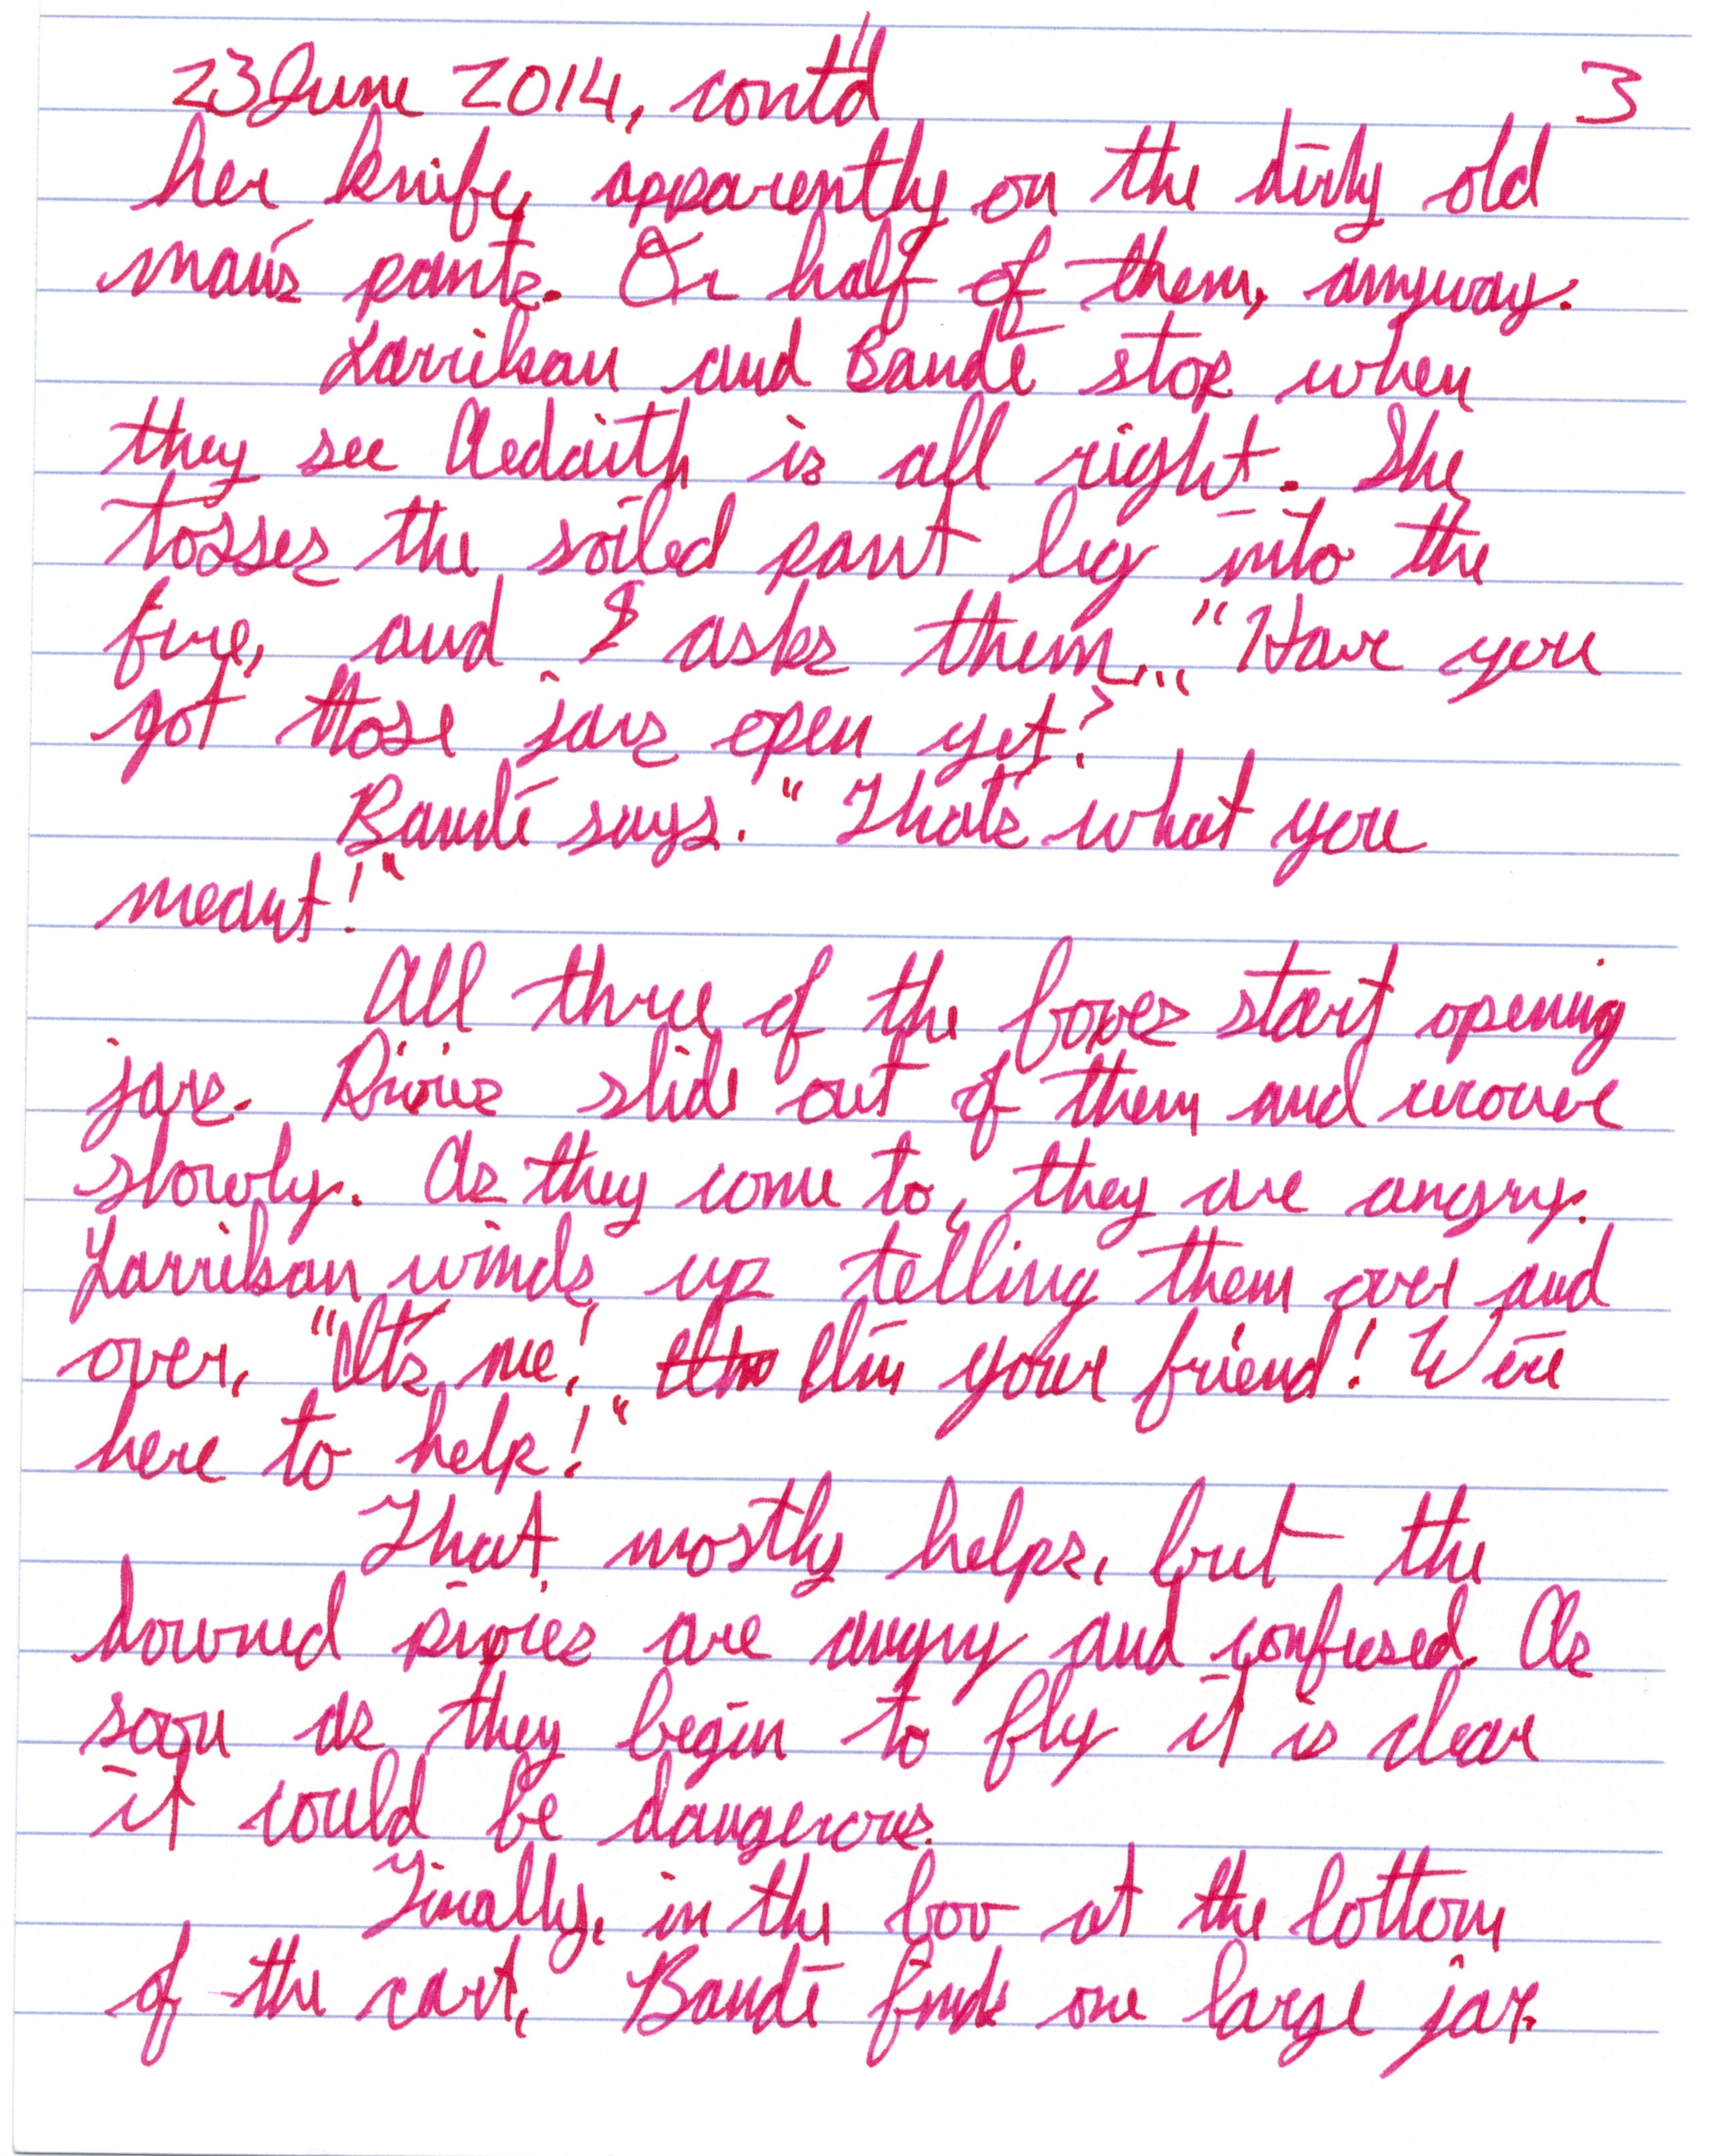 23 June 2014, cont'd 3
her knife, apparently on the dirty old
man's pants. Or half of them, anyway.
Larrikan and Baudé stop when
they see Aedaith is all right. She
tosses the soiled pant leg into the
fire, and asks them, "Have you
got those jars open yet?"
Baudé says. "That's what you
meant!"
All three of the boxes start opening
jars. Pixies slide out of them and recover
slowly. As they come to, they are angry.
Larrikan winds up telling them over and
over, "It's me! I'm your friend! We're
here to help!"
That mostly helps, but the
downed pixies are angry and confused. As
soon as they begin to fly it is clear
it could be dangerous.
Finally, in the box at the bottom
of the cart, Baudé finds one large jar.